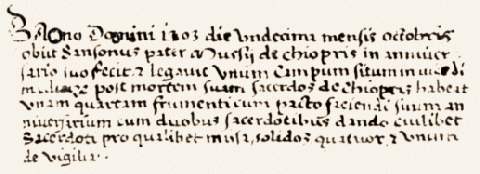 Anno Domini 1103 die undecima mensis octobris
obiit Sansonus pater Musii de Chiopris in anniver
sario suo fecit, & legavit unum campum situm in
post mortem suam sacerdos de Chiopris habeat
unam quartam frumenti cum pacto faciendi suum an
niversarium cum duobus sacerdotibus dando cuilibet
Sacerdoti pro qualibet missa, solidos quatuor, & unum
de vigilia.